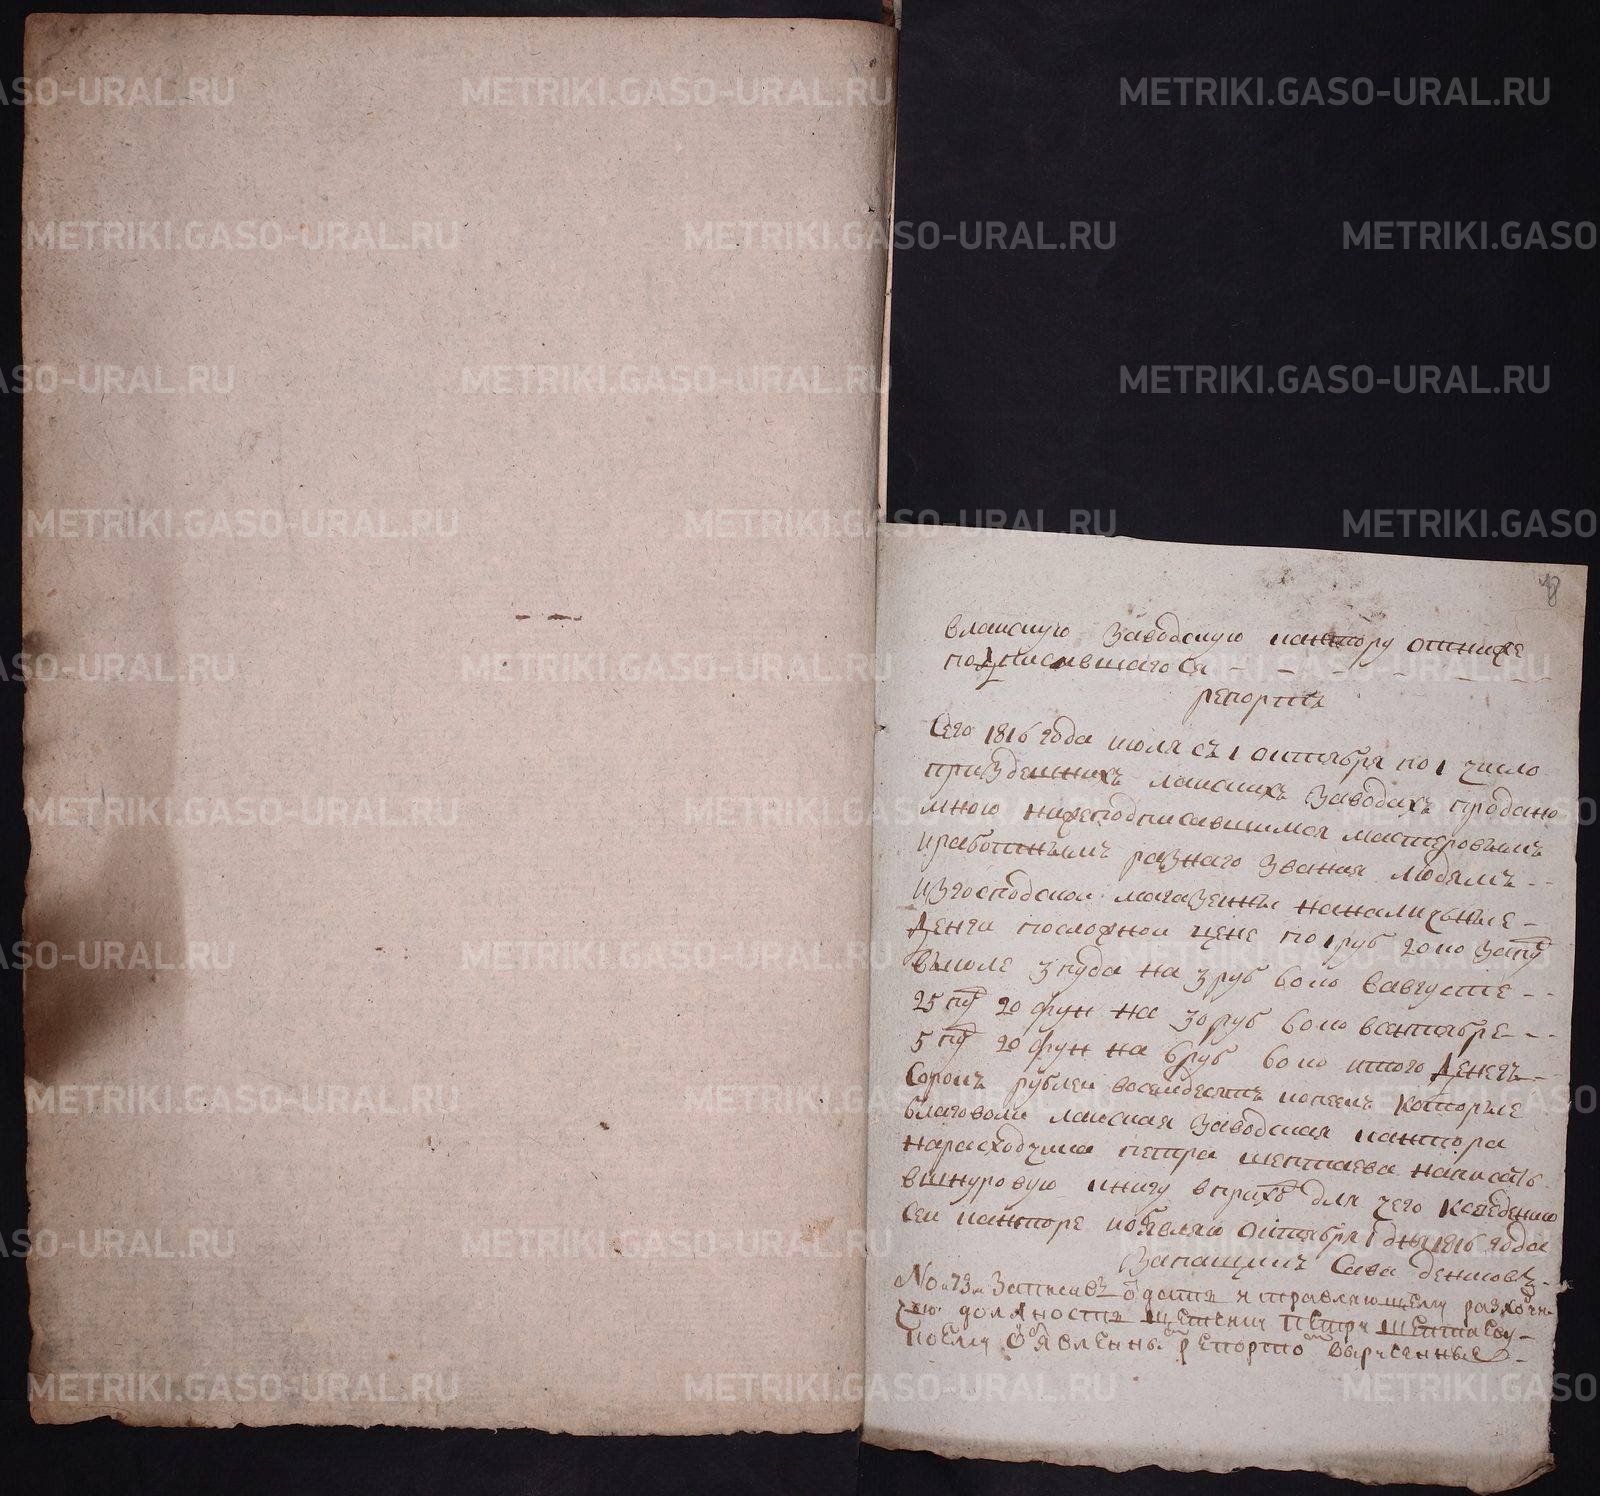 8
влаискую заводскую кантору отниже
подписавшагося - - - - - -
репортъ
Сего 1816 года июля съ 1 октября по 1 число
призденнихъ лаискихъ заводахъ продано
мною нижеподписавшимся мастеровымъ
иработнымъ разнаго звания людямъ - -
изгосподскои магазеины наналичные -
денги посложнои цене по 1 руб 20 ко запу
виюле 3 пуда на 3 руб 60 ко вавгусте - -
25 пу 20 фун на 30 руб 60 ко всентябре - -
5 пу 20 фун на 6 руб 60 ко итого денегъ - -
Сорокъ рублеи восемдесятъ копеекъ которые
благоволи лаиская заводская кантора
нарасходчика петра шептаева написать
вшнуровую книгу вприхо для чего ксведению
сеи канторе иобявляю октября 1 дня 1816 года
Сава
No 73 Записавъ отдать исправляющему разхо
должность Петру шептаеву -
поему обявленные репорто вырученные -
METRIKI.GASO-URAL.RU